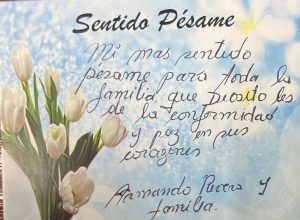 Sentido Pésame
Mi mas sentido
pesame para toda la
familia que Diosito les
de la conformidad
y paz en sus
corazones
Armando Rivera y
familia.